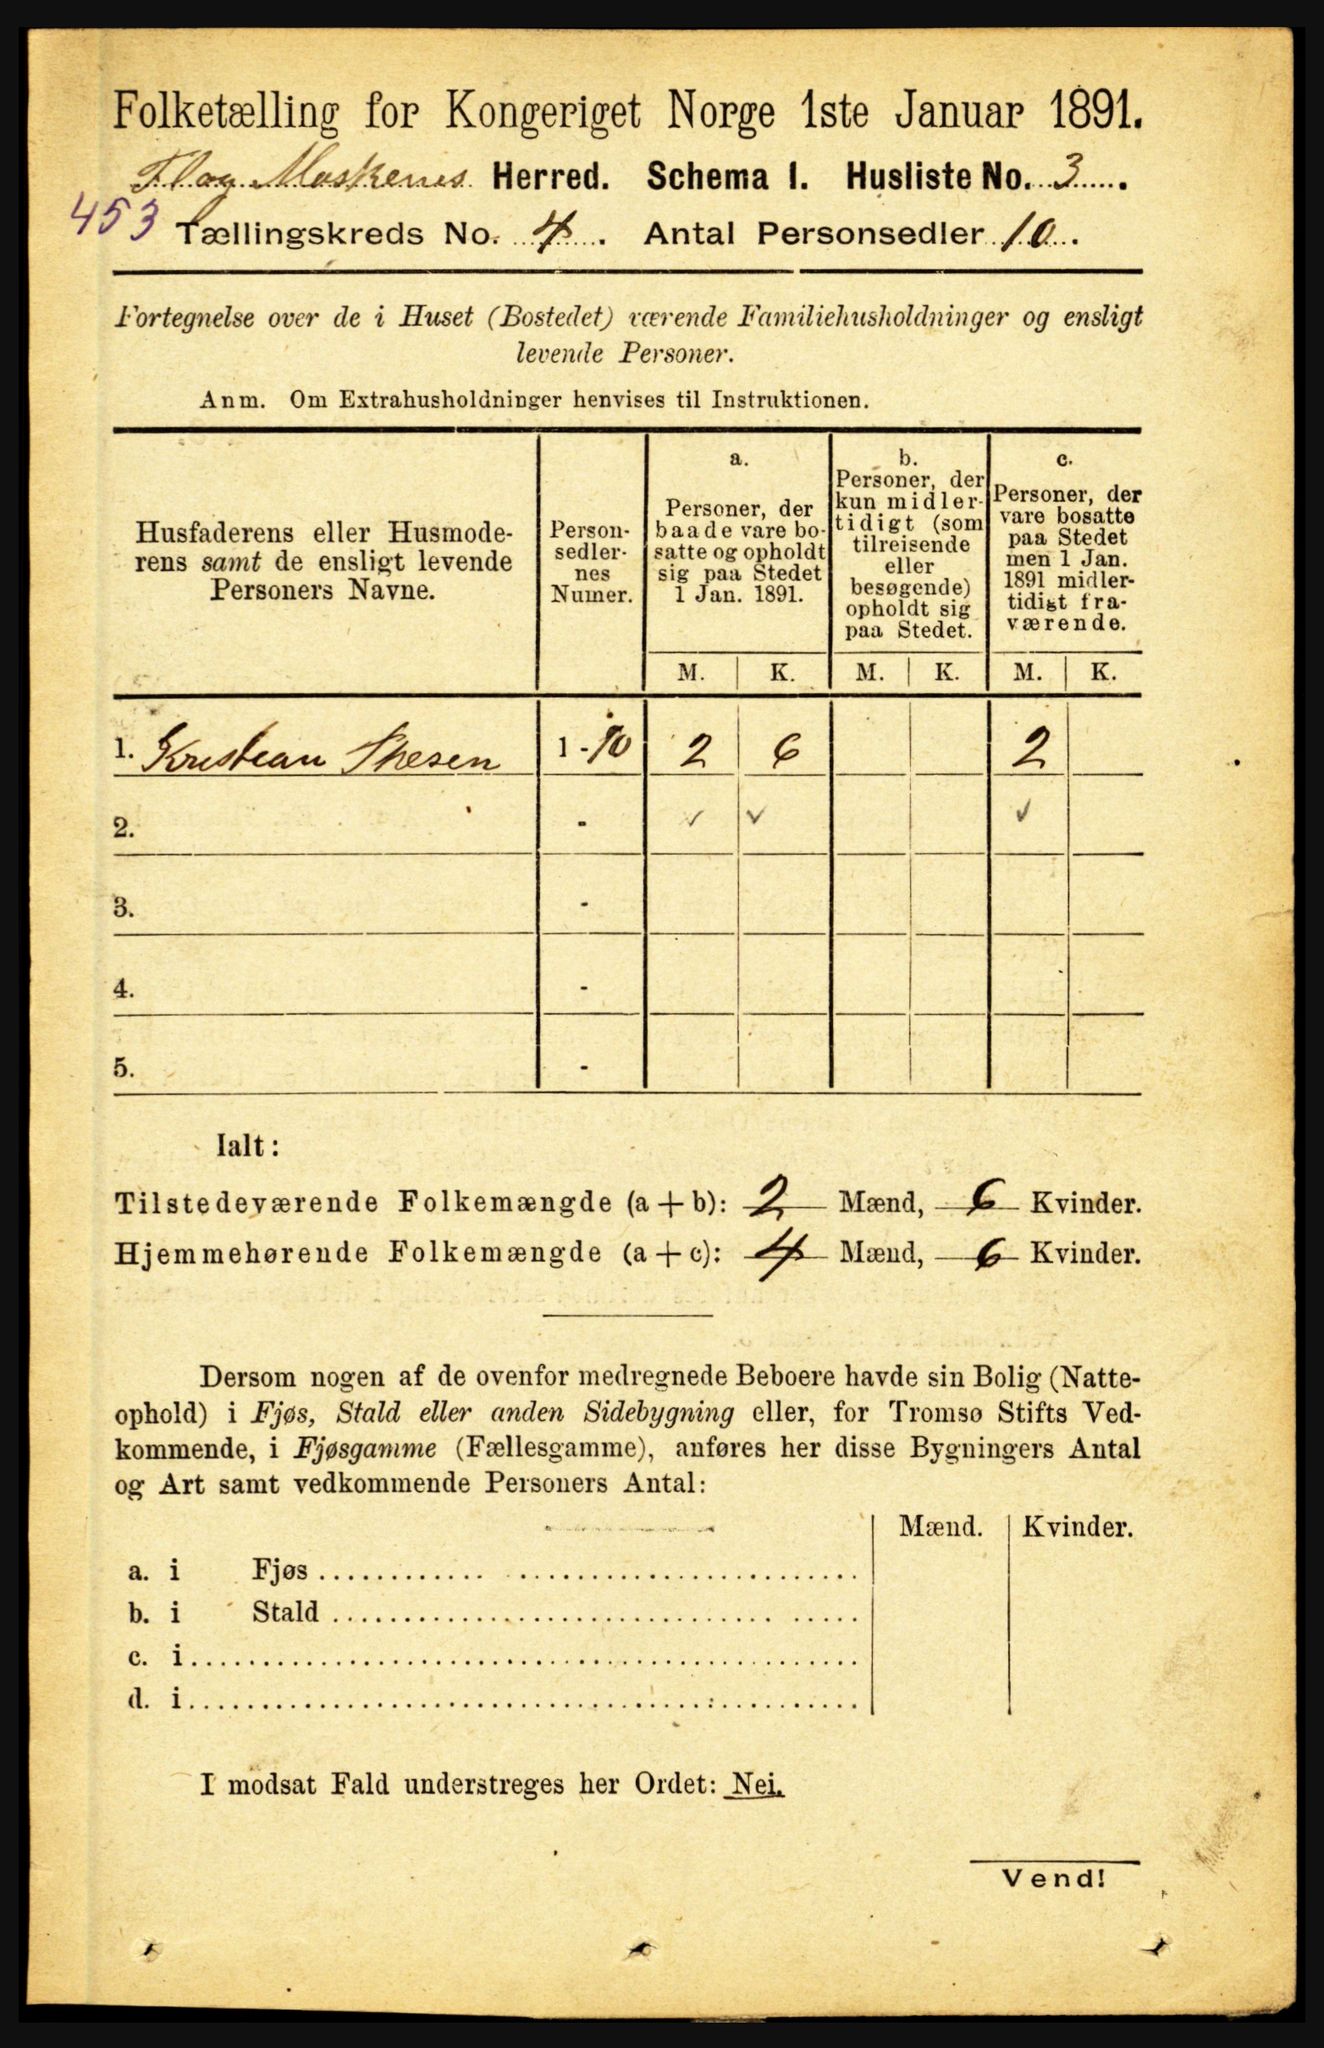 Folketælling for Kongeriget Norge 1ste Januar 1891.
Flag. Moskenes Herred. Schema I. Husliste No. 3.
453 Tællingskreds No. 4. Antal Personsedler 10.
Fortegnelse over de i Huset (Bostedet) værende Familiehusholdninger og ensligt
levende Personer.
Anm. Om Extrahusholdninger henvises til Instruktionen.
Husfaderens eller Husmode-
rens samt de ensligt levende
Personers Navne.
Person-
sedler-
nes
Numer.
a.
Personer, der
baade vare bo-
satte og opholdt
sig paa Stedet
1 Jan. 1891.
b.
Personer, der
kun midler-
tidigt (som
tilreisende
eller
besøgende)
opholdt sig
paa Stedet.
c.
Personer, der
vare bosatte
paa Stedet
men 1 Jan.
1891 midler-
tidigt fra-
værende.
M. K. M. K. M. K.
1. Kristian Thesen 1-10 2 6 2
2. - ✓ ✓ ✓
3. -
4. -
5. -
Ialt:
Tilstedeværende Folkemængde (a+b): 2 Mænd, 6 Kvinder.
Hjemmehørende Folkemængde (a+c): 4 Mænd, 6 Kvinder.
Dersom nogen af de ovenfor medregnede Beboere havde sin Bolig (Natte-
ophold) i Fjøs, Stald eller anden Sidebygning eller, for Tromsø Stifts Ved-
kommende, i Fjøsgamme (Fællesgamme), anføres her disse Bygningers Antal
og Art samt vedkommende Personers Antal:
Mænd. Kvinder.
a. i Fjøs
b. i Stald
c. i
d. i
I modsat Fald understreges her Ordet: Nei.
Vend!